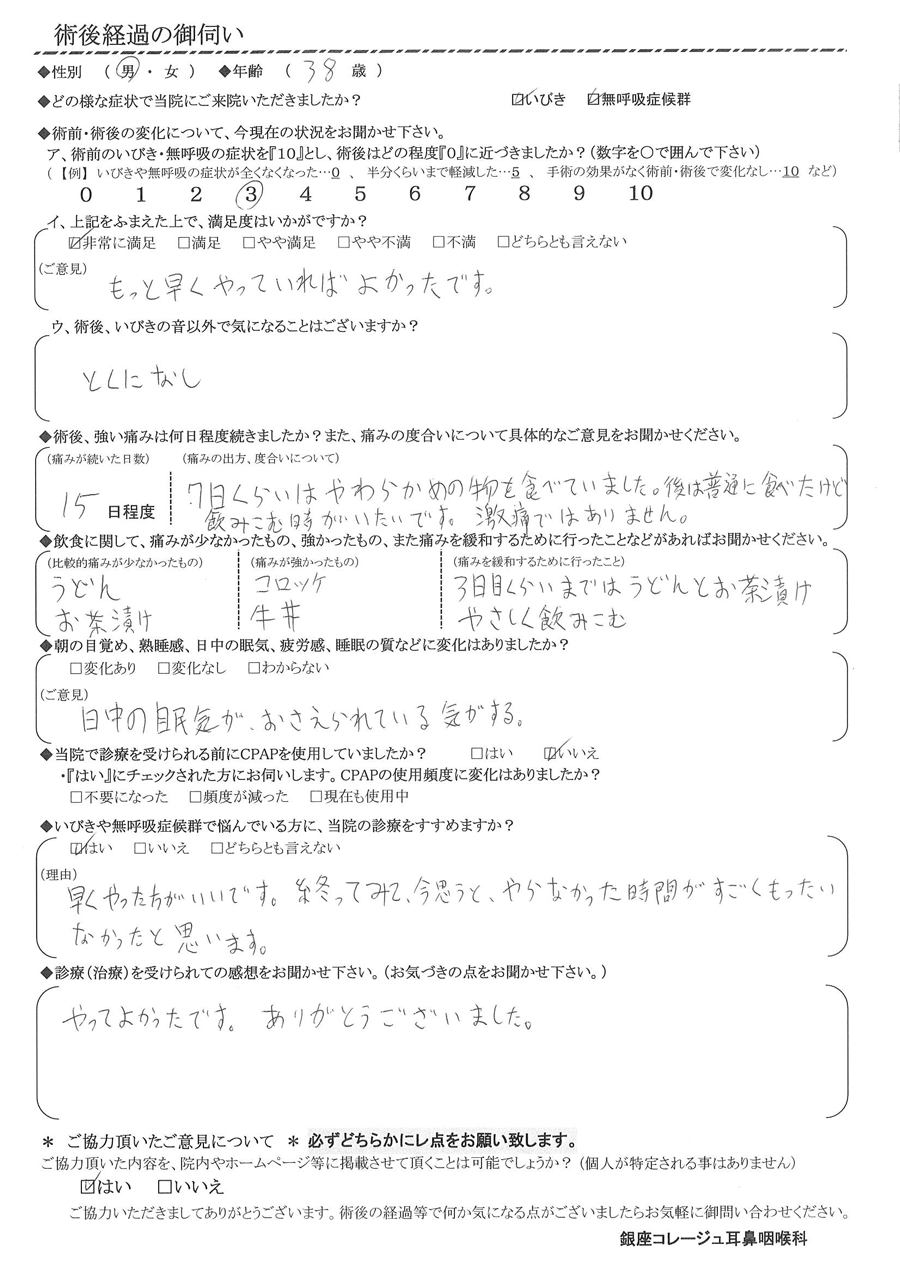 術後経過の御伺い
◆性別 （ 男 ・ 女 ） ◆年齢 （ 38 歳 ）
◆どの様な症状で当院にご来院いただきましたか？ ☑いびき ☑無呼吸症候群
◆術前・術後の変化について、今現在の状況をお聞かせ下さい。
ア、術前のいびき・無呼吸の症状を『10』とし、術後はどの程度『0』に近づきましたか？（数字を〇で囲んで下さい）
（【例】 いびきや無呼吸の症状が全くなくなった…0 、 半分くらいまで軽減した…5 、 手術の効果がなく術前・術後で変化なし…10 など）
0 1 2 3 4 5 6 7 8 9 10
イ、上記をふまえた上で、満足度はいかがですか？
☑非常に満足 □満足 □やや満足 □やや不満 □不満 □どちらとも言えない
（ご意見）
もっと早くやっていればよかったです。
ウ、術後、いびきの音以外で気になることはございますか？
とくになし
◆術後、強い痛みは何日程度続きましたか？また、痛みの度合いについて具体的なご意見をお聞かせください。
（痛みが続いた日数） （痛みの出方、度合いについて）
15 日程度 7日くらいはやわらかめの物を食べていました。後は普通に食べたけど
飲みこむ時がいたいです。激痛ではありません。
◆飲食に関して、痛みが少なかったもの、強かったもの、また痛みを緩和するために行ったことなどがあればお聞かせください。
（比較的痛みが少なかったもの） （痛みが強かったもの） （痛みを緩和するために行ったこと）
うどん コロッケ 3日目くらいまではうどんとお茶漬け
お茶漬け 牛丼 やさしく飲みこむ
◆朝の目覚め、熟睡感、日中の眠気、疲労感、睡眠の質などに変化はありましたか？
□変化あり □変化なし □わからない
（ご意見）
日中の眠気が、おさえられている気がする。
◆当院で診療を受けられる前にCPAPを使用していましたか？ □はい ☑いいえ
・『はい』にチェックされた方にお伺いします。CPAPの使用頻度に変化はありましたか？
□不要になった □頻度が減った □現在も使用中
◆いびきや無呼吸症候群で悩んでいる方に、当院の診療をすすめますか？
☑はい □いいえ □どちらとも言えない
（理由）
早くやった方がいいです。終ってみて、今思うと、やらなかった時間がすごくもったい
なかったと思います。
◆診療（治療）を受けられての感想をお聞かせ下さい。（お気づきの点をお聞かせ下さい。）
やってよかったです。ありがとうございました。
＊ ご協力頂いたご意見について ＊ 必ずどちらかにレ点をお願い致します。
ご協力頂いた内容を、院内やホームページ等に掲載させて頂くことは可能でしょうか？（個人が特定される事はありません）
☑はい □いいえ
ご協力いただきましてありがとうございます。術後の経過等で何か気になる点がございましたらお気軽に御問い合わせください。
銀座コレージュ耳鼻咽喉科